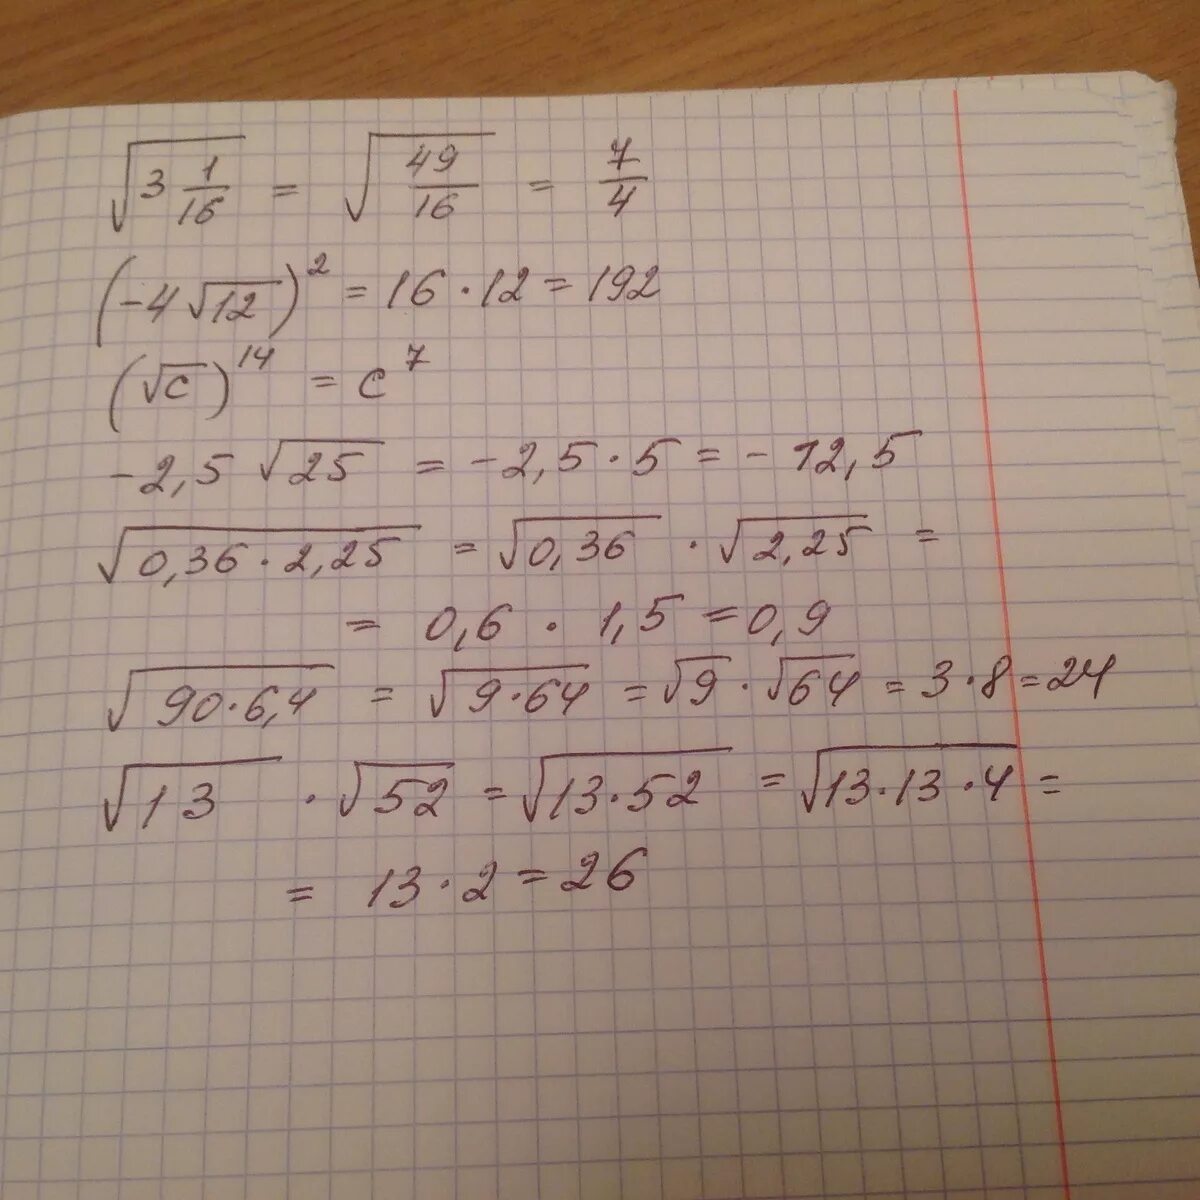 √(3 1/16) = √(49/16) = 7/4
(-4√12)² = 16 · 12 = 192
(√c)¹⁴ = c⁷
-2,5 √25 = -2,5 · 5 = - 12,5
√(0,36 · 2,25) = √0,36 · √2,25 =
= 0,6 · 1,5 = 0,9
√(90 · 6,4) = √(9 · 64) = √9 · √64 = 3 · 8 = 24
√13 · √52 = √(13 · 52) = √(13 · 13 · 4) =
= 13 · 2 = 26